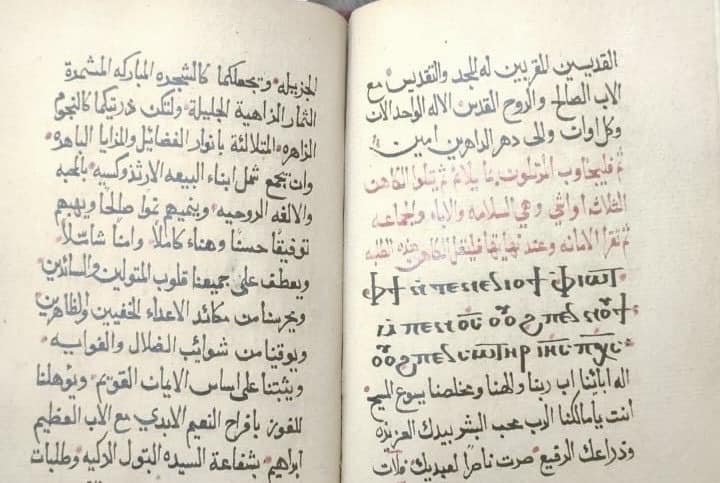 القديسين المقربين له المجد والتقديس مع
الاب الصالح والروح القدس الاله الواحد الان
وكل اوان والى دهر الداهرين امين
ثم فليجاوب المرتلون بما يلائم ثم يتلوا الكاهن
الثلاث اواشي وهي السلامه والاباء والجماعه
ثم تقرا الامانه وعند نهايتها فليقل الكاهن هذه الطلبه
ⲫϯ ⲫⲓⲱⲧ
ⲟⲩⲟϩ
ⲟⲩⲟϩ ⲡⲉⲛⲥⲱⲧⲏⲣ ⲓⲏⲥ ⲡⲭⲥ
اله ابائنا اب ربنا والهنا ومخلصنا يسوع المسيح
انت يا مالكنا الرب محب البشر بيدك العزيزه
وذراعك الرفيع صرت ناصرًا لعبيدك
الجزيله وتجعلكما كالشجره المباركه المشمرة
الثمار الزاهية الجليلة ولتكن ذريتكما كالنجوم
الزاهره المتلالئة بانوار الفضايل والمزايا الباهره
وان يجمع شمل ابناء البيعه الارثذوكسيه بالمحبه
والالفه الروحيه وينميهم نموا صالحًا ويهبهم
توفيقًا حسنًا وهناء كاملًا وامنًا شاملًا
ويعطف على جميعنا قلوب المتولين والسائدين
ويحرسنا من مكائد الاعداء الخفيين والظاهرين
ويوقينا من شوائب الضلال والغوايه
ويثبتنا على اساس الايمان القويم ويؤهلنا
للفوز بافراح النعيم الابدي مع الاب العظيم
ابراهيم بشفاعة السيده البتول الزكيه وطلبات